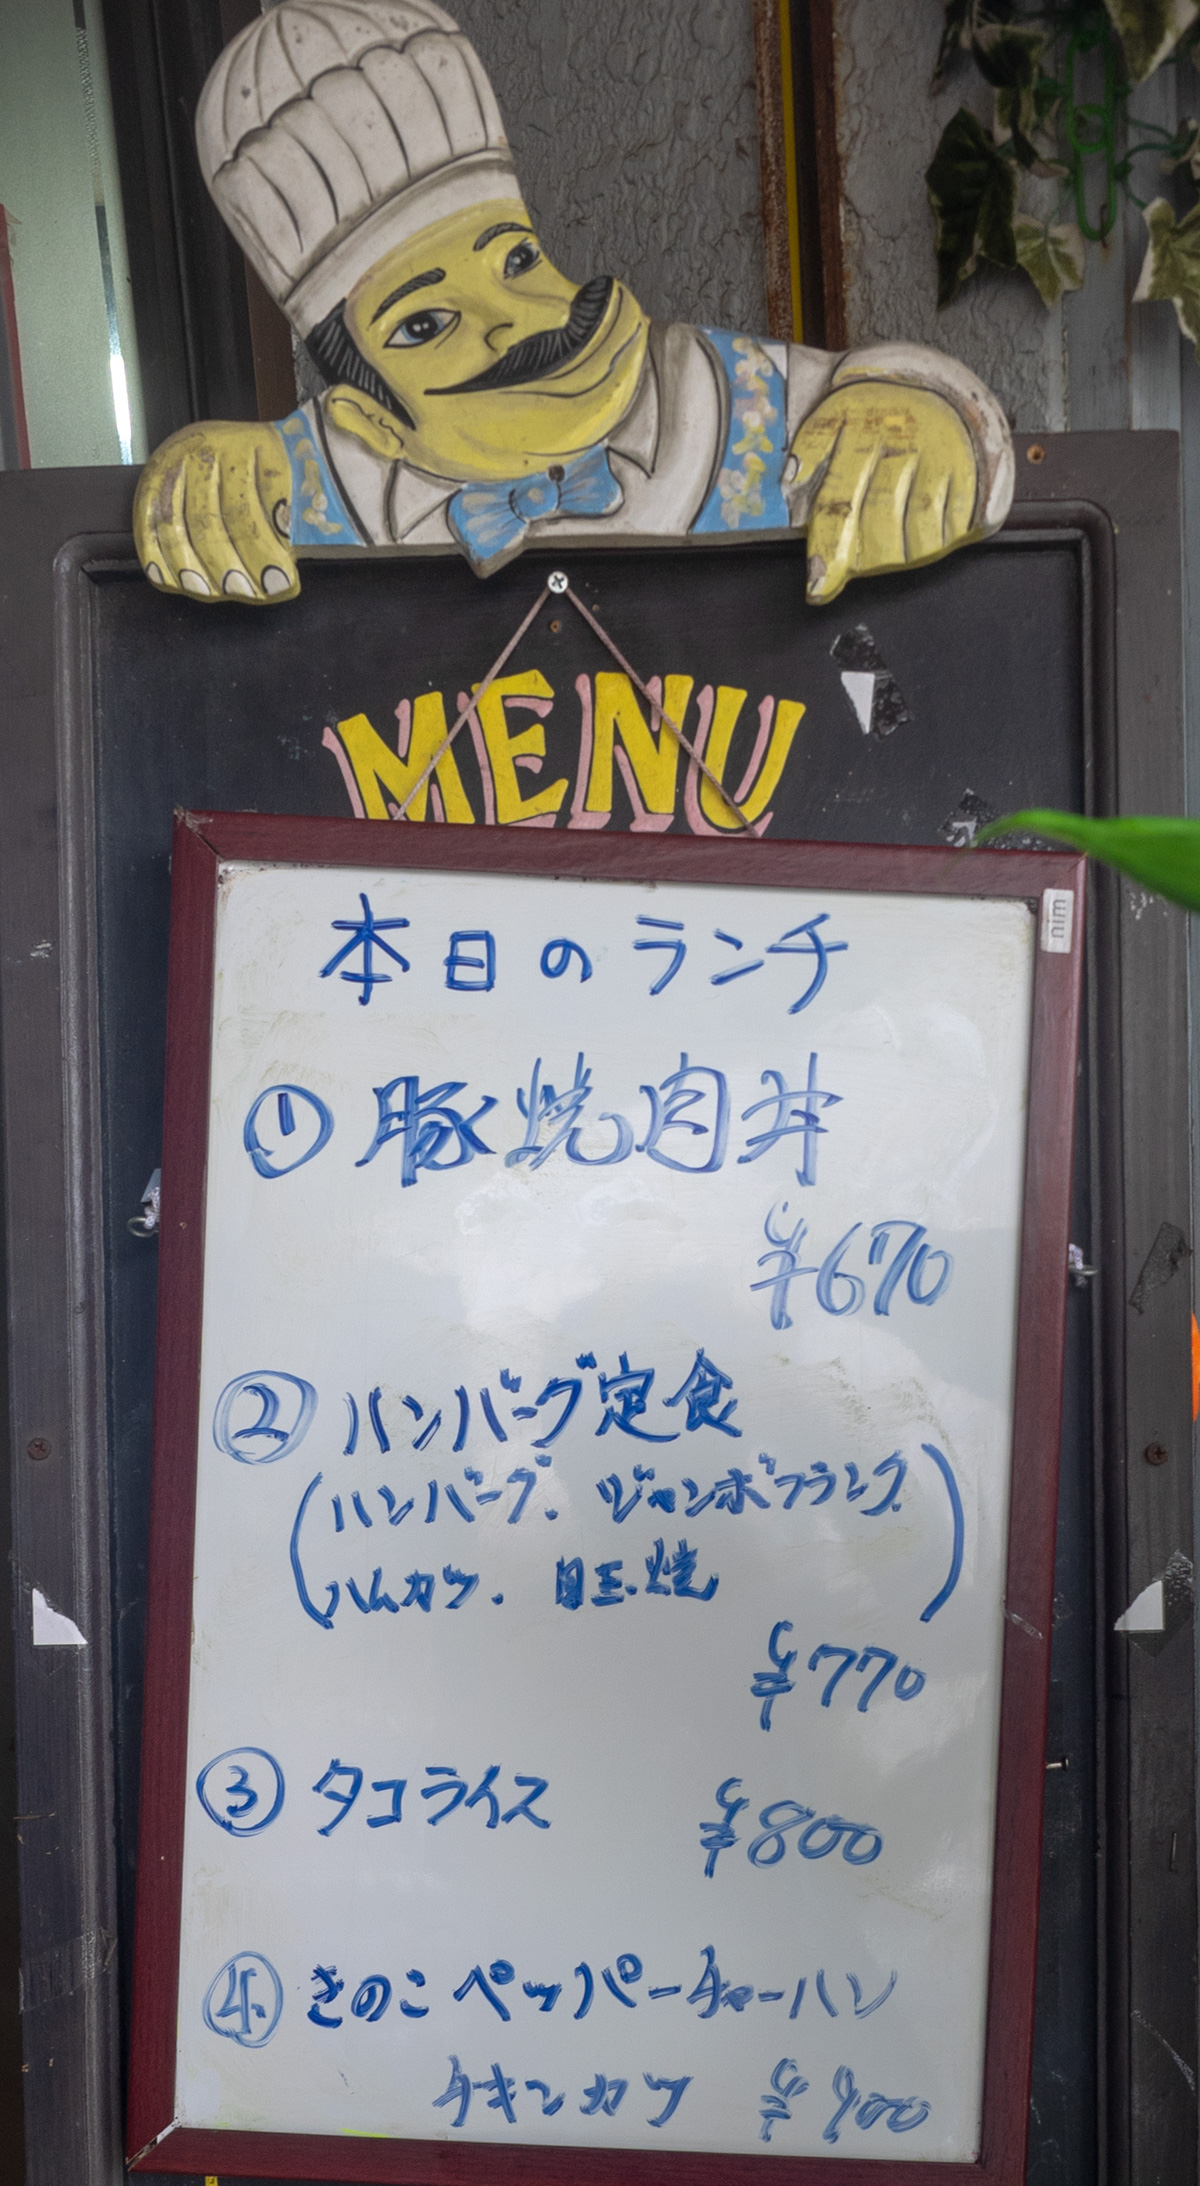 MENU
min
本日のランチ
① 豚焼肉丼
¥670
② ハンバーグ定食
(ハンバーグ、ジャンボフランク、
ハムカツ、目玉焼)
¥770
③ タコライス ¥800
④ きのこペッパーチャーハン
チキンカツ ¥900